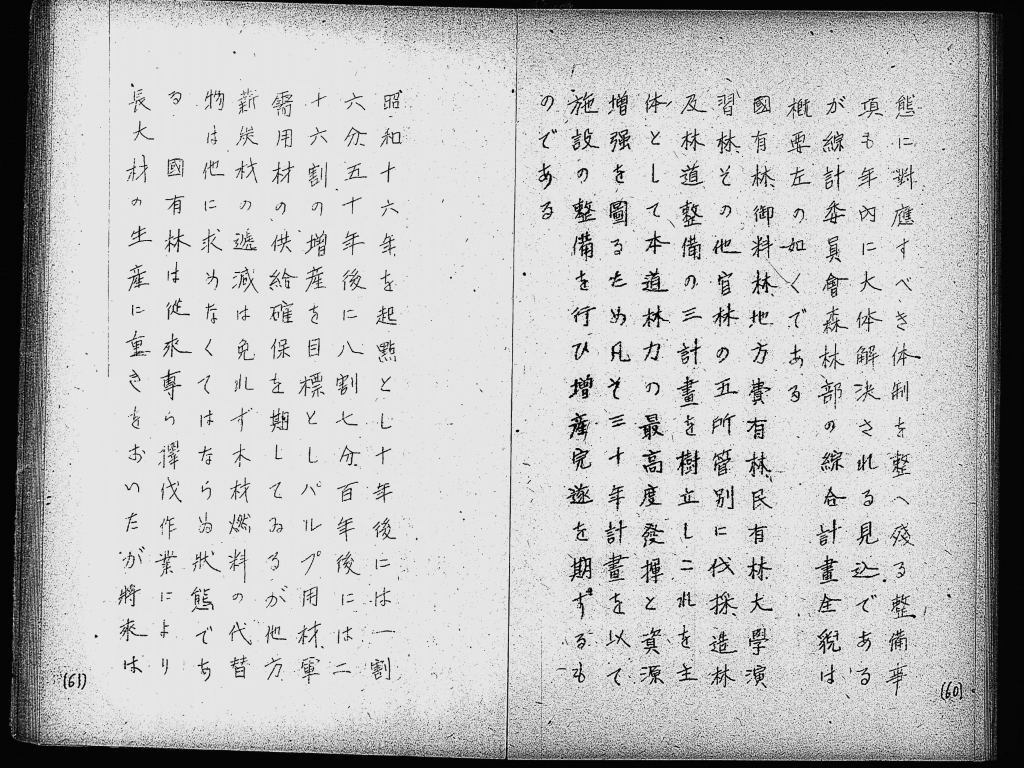 態に對應すべき体制を整へ殘る整備事
項も年內に大体解決される見込である
が綜計委員會森林部の綜合計畫全貌は
概要左の如くである
國有林御料林地方費有林民有林大學演
習林その他官林の五所管別に伐採造林
及林道整備の三計畫を樹立しこれを主
体として本道林力の最高度發揮と資源
增强を圖るため凡そ三十年計畫を以て
施設の整備を行ひ增產完遂を期するも
のである
(60)
昭和十六年を起點とし十年後には一割
六分五十年後に八割七分百年後には二
十六割の増産を目標としパルプ用材軍
需用材の供給確保を期してゐるが他方
薪炭材の遞減は免れず木材燃料の代替
物は他に求めなくてはならぬ狀態であ
る　國有林は從來專ら擇伐作業により
長大材の生産に重きをおいたが將來は
(61)